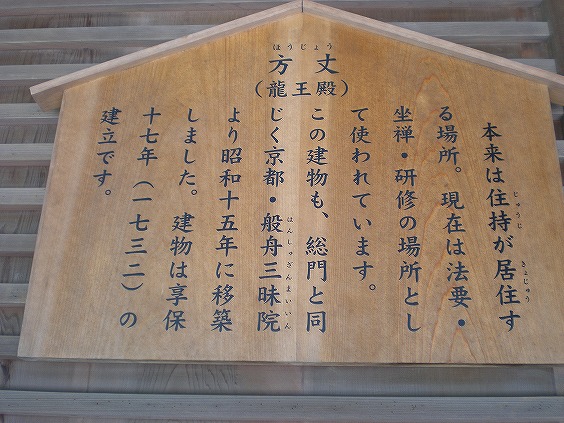 ほうじょう
方丈
（龍王殿）
本来は住持が居住す
じゅうじ
きょじゅう
る場所。現在は法要・
坐禅・研修の場所とし
て使われています。
この建物も、総門と同
じく京都・般舟三昧院
はんしゅざんまいいん
より昭和十五年に移築
しました。建物は享保
十七年（一七三二）の
建立です。